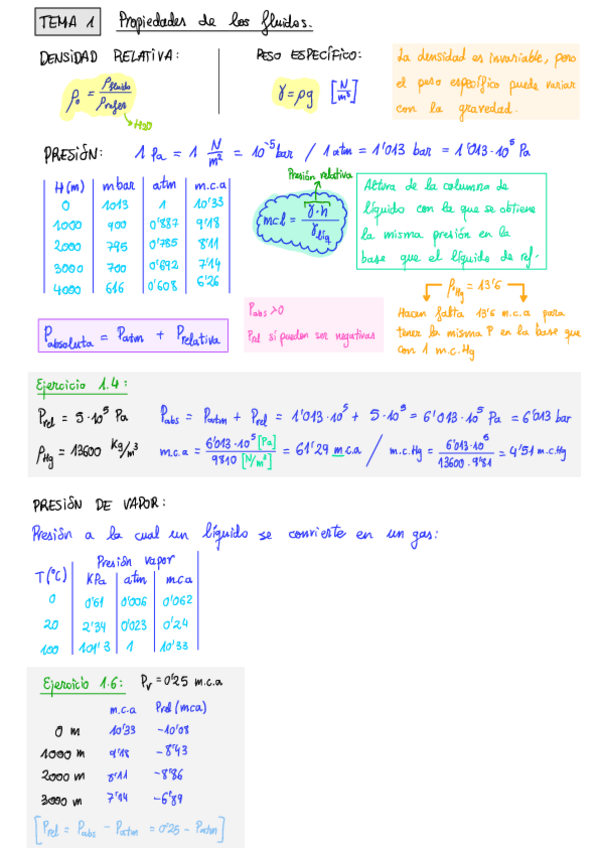 TEMA 1 Propiedades de los fluidos.
DENSIDAD RELATIVA:
ρ₀ = ρfluido / ρrefer
→ H2O
PESO ESPECÍFICO:
γ = ρg [N/m³]
La densidad es invariable, pero
el peso específico puede variar
con la gravedad.
PRESIÓN: 1 Pa = 1 N/m² = 10⁻⁵ bar / 1 atm = 1'013 bar = 1'013·10⁵ Pa
H(m) mbar atm m.c.a
0 1013 1 10'33
1000 900 0'887 9'18
2000 795 0'785 8'11
3000 700 0'692 7'14
4000 616 0'608 6'26
Presión relativa
mcl = γ·h / γliq
Altura de la columna de
líquido con la que se obtiene
la misma presión en la
base que el líquido de ref-
ρHg = 13'6
Hacen falta 13'6 m.c.a para
tener la misma P en la base que
con 1 m.c.Hg
Pabsoluta = Patm + Prelativa
Pabs > 0
Prel sí pueden ser negativas
Ejercicio 1.4:
Prel = 5·10⁵ Pa Pabs = Patm + Prel = 1'013·10⁵ + 5·10⁵ = 6'013·10⁵ Pa = 6'013 bar
ρHg = 13600 Kg/m³ m.c.a = 6'013·10⁵ [Pa] / 9810 [N/m³] = 61'29 m.c.a / m.c.Hg = 6'013·10⁵ / 13600·9'81 = 4'51 m.c.Hg
PRESIÓN DE VAPOR:
Presión a la cual un líquido se convierte en un gas:
Presión vapor
T(°C) KPa atm mca
0 0'61 0'006 0'062
20 2'34 0'023 0'24
100 101'3 1 10'33
Ejercicio 1.6: Pv = 0'25 m.c.a
m.c.a Prel (mca)
0 m 10'33 -10'08
1000 m 9'18 -8'43
2000 m 8'11 -8'86
3000 m 7'14 -6'89
[Prel = Pabs - Patm = 0'25 - Patm]